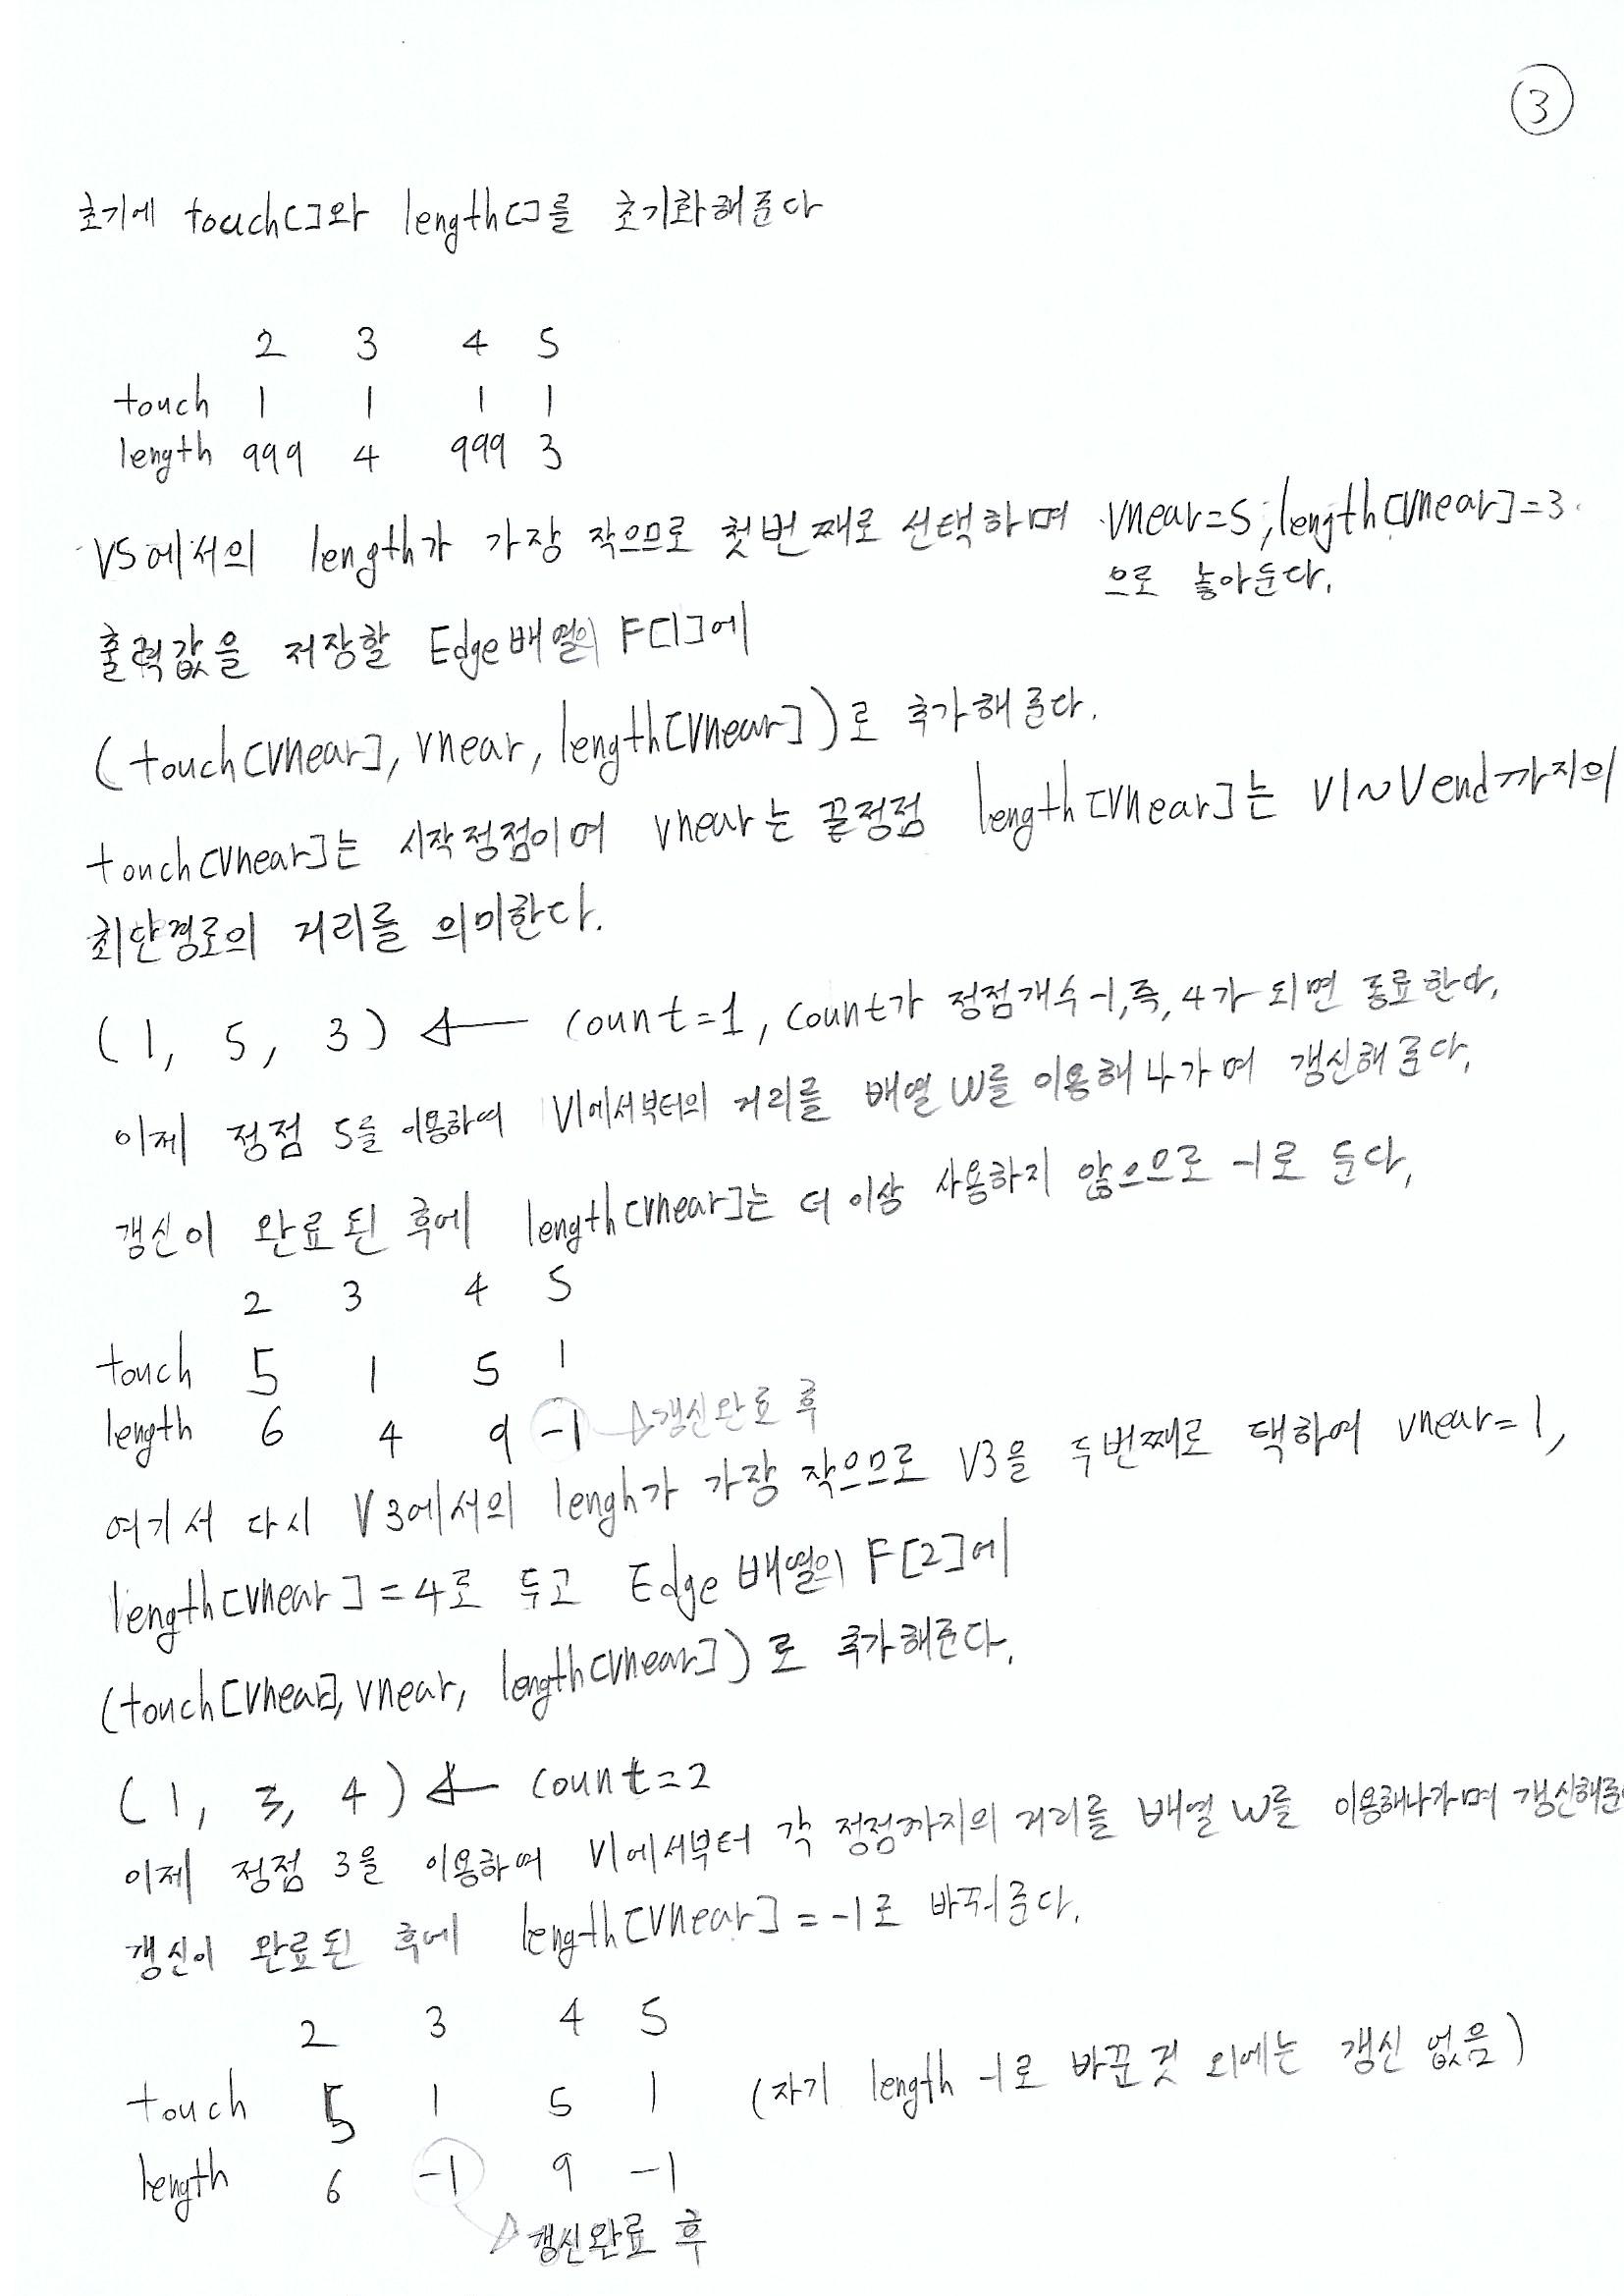 ③
초기에 touch[]와 length[]를 초기화해준다
2 3 4 5
touch 1 1 1 1
length 999 4 999 3
V5에서의 length가 가장 작으므로 첫번째로 선택하며 vnear=5, length[vnear]=3
으로 놓아둔다.
출력값을 저장할 Edge배열의 F[1]에
(touch[vnear], vnear, length[vnear])로 추가해준다.
touch[vnear]는 시작정점이며 vnear는 끝정점 length[vnear]는 V1~Vend까지의
최단경로의 거리를 의미한다.
(1, 5, 3) ← count=1, count가 정점개수-1,즉, 4가 되면 종료한다.
이제 정점 5를 이용하여 V1에서부터의 거리를 배열 W를 이용해나가며 갱신해준다.
갱신이 완료된 후에 length[vnear]는 더 이상 사용하지 않으므로 -1로 둔다.
2 3 4 5
touch 5 1 5 1
length 6 4 9 -1 → 갱신완료 후
여기서 다시 V3에서의 lengh가 가장 작으므로 V3을 두번째로 택하여 vnear=1,
length[vnear]=4로 두고 Edge 배열의 F[2]에
(touch[vnear], vnear, length[vnear])로 추가해준다.
(1, 3, 4) ← count=2
이제 정점 3을 이용하여 V1에서부터 각 정점까지의 거리를 배열 W를 이용해나가며 갱신해준
갱신이 완료된 후에 length[vnear]=-1로 바꿔준다.
2 3 4 5
touch 5 1 5 1 (자기 length -1로 바꾼것 외에는 갱신 없음)
length 6 -1 9 -1
→ 갱신완료 후